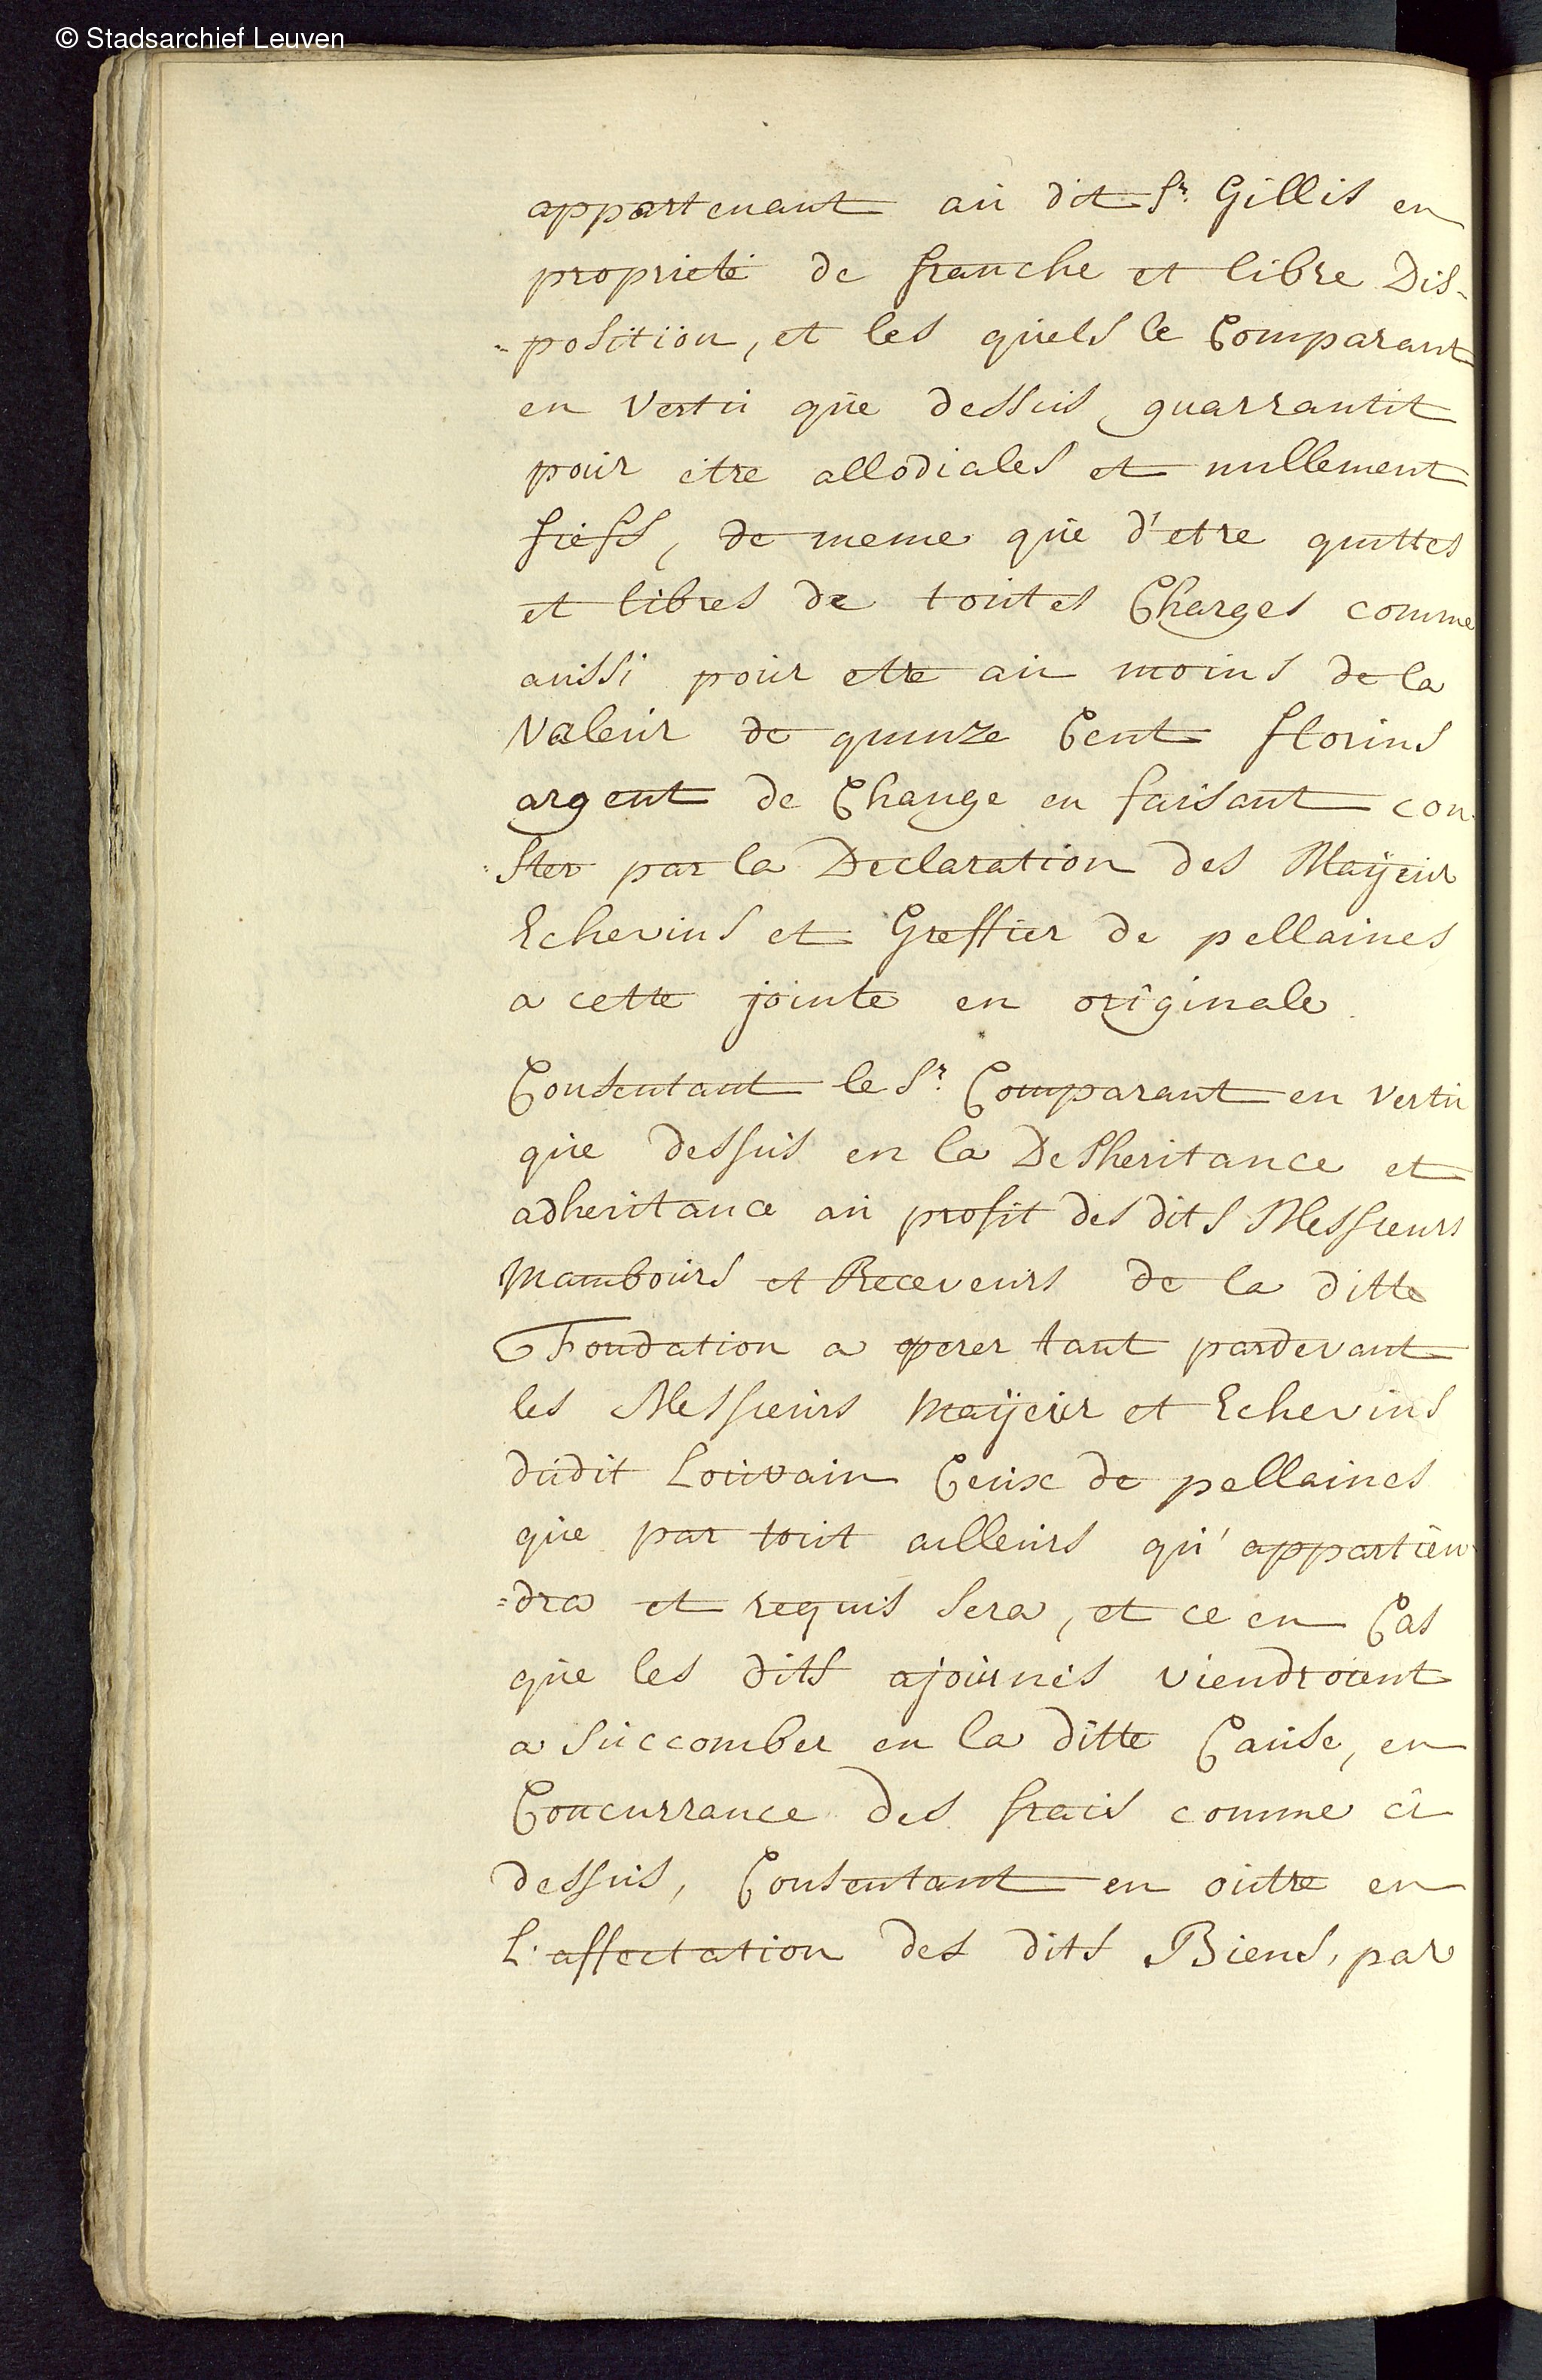 © Stadsarchief Leuven
appartenant au dit Sr. Gillis en
proprieté de franche et libre Dis-
=position, et les quels le Comparant
en Vertu que dessus, guarrantit
pour être allodiales et nullement
fiefs, de meme que d'etre quittes
et libres de toutes Charges comme
aussi pour etre au moins de la
Valeur de quinze Cent florins
argent de Change en faisant con-
=ster par la Declaration des Maÿeur
Echevins et Greffier de pellaines
a cette jointe en originale.
Consentant le Sr. Comparant en vertu
que dessus en la Desheritance et
adheritance au profit des dits Messieurs
Mambours et Receveurs de la ditte
Fondation a operer tant pardevant
les Messieurs Maÿeur et Echevins
dudit Louvain Ceux de pellaines
que par tout ailleurs qu'appartien
=dra et requis sera, et ce en Cas
que les dits ajournés viendroient
a Succomber en la ditte Cause, en
Concurrance des frais comme ci
dessus, Consentant en outre en
L'affectation des dits Biens, par